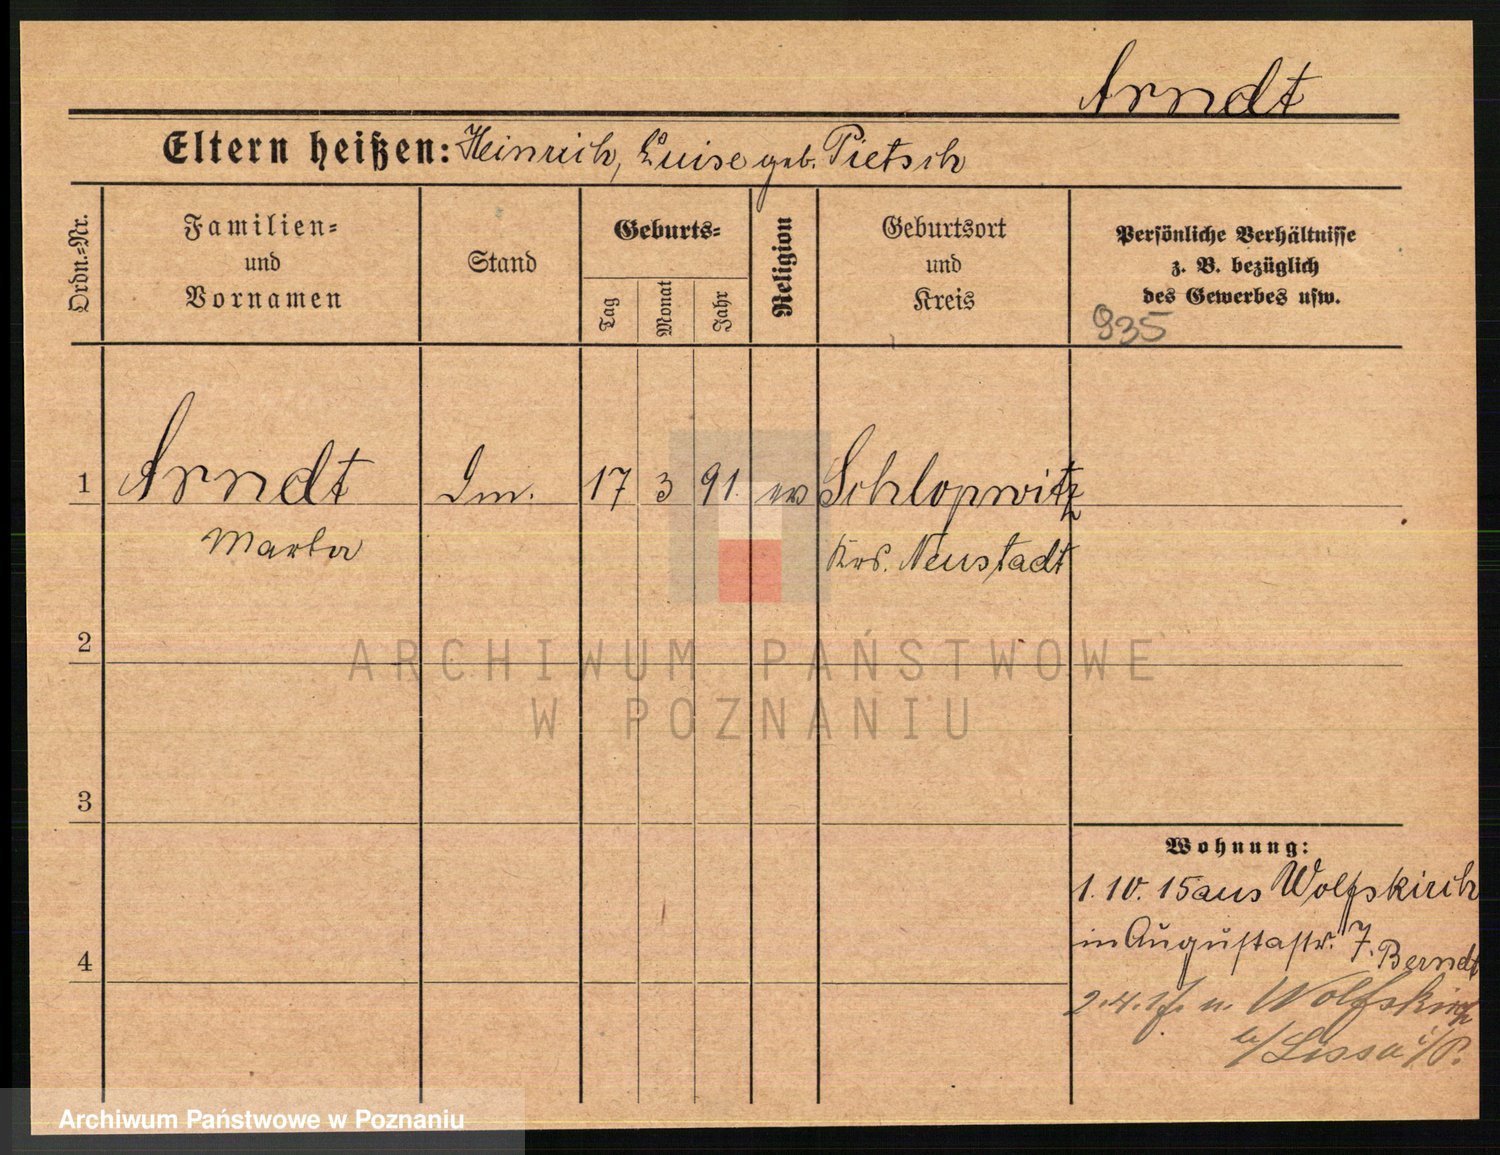 Arndt
Eltern heißen: Heinrich, Luise geb. Pietsch
Ordn.-Nr.
Familien- und Vornamen
Stand
Geburts-
Tag
Monat
Jahr
Religion
Geburtsort und Kreis
Persönliche Verhältnisse
z. B. bezüglich
des Gewerbes usw.
935
1 Arndt 17 3 91. ev Schlopwitz
Marta Krs. Neustadt
2
ARCHIWUM PAŃSTWOWE
W POZNANIU
3
Wohnung:
1. 10. 15 aus Wolfskirch
in Augustastr. 7. Berndt
4
2.4. n. Wolfskirch
b/Lissa i/P.
Archiwum Państwowe w Poznaniu